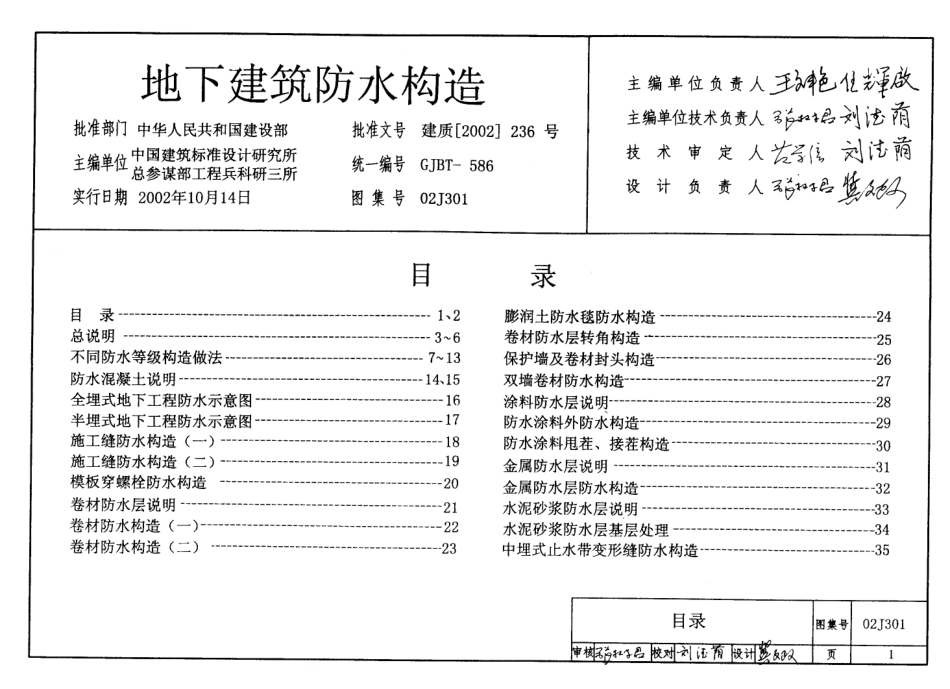 地下建筑防水构造
批准部门 中华人民共和国建设部 批准文号 建质[2002] 236 号
主编单位 中国建筑标准设计研究所
总参谋部工程兵科研三所
统一编号 GJBT-586
实行日期 2002年10月14日 图集号 02J301
主编单位负责人
主编单位技术负责人
技术审定人
设计负责人
目 录
目 录 1、2
总说明 3~6
不同防水等级构造做法 7~13
防水混凝土说明 14、15
全埋式地下工程防水示意图 16
半埋式地下工程防水示意图 17
施工缝防水构造（一） 18
施工缝防水构造（二） 19
模板穿螺栓防水构造 20
卷材防水层说明 21
卷材防水构造（一） 22
卷材防水构造（二） 23
膨润土防水毯防水构造 24
卷材防水层转角构造 25
保护墙及卷材封头构造 26
双墙卷材防水构造 27
涂料防水层说明 28
防水涂料外防水构造 29
防水涂料甩茬、接茬构造 30
金属防水层说明 31
金属防水层防水构造 32
水泥砂浆防水层说明 33
水泥砂浆防水层基层处理 34
中埋式止水带变形缝防水构造 35
目录 图集号 02J301
审核 校对 设计 页 1